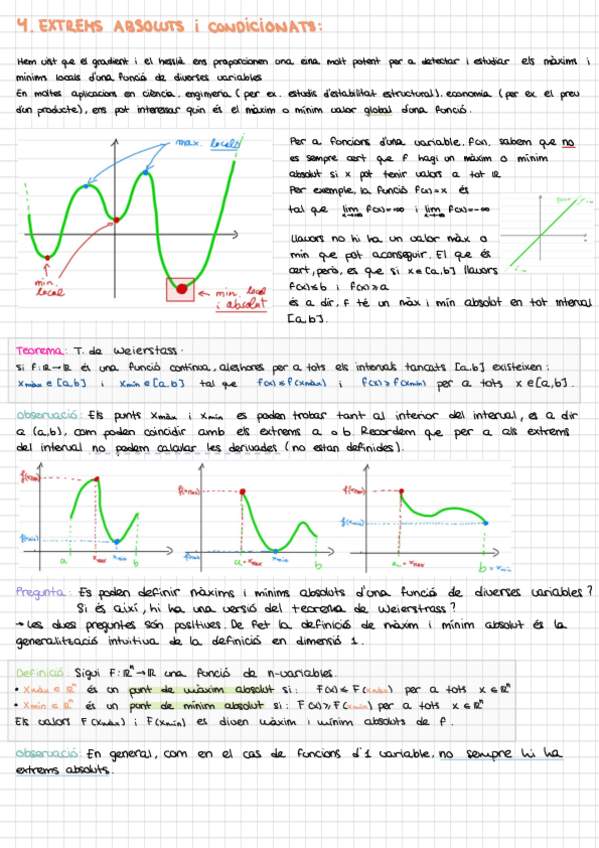 4. EXTREMS ABSOLUTS i CONDICIONATS:
Hem vist que el gradient i el hessià ens proporcionen una eina molt potent per a detectar i estudiar els màxims i
mínims locals d'una funció de diverses variables
En moltes aplicacions en ciència, enginyeria (per ex. estudis d'estabilitat estructural), economia (per ex el preu
d'un producte), ens pot interessar quin és el màxim o mínim valor global d'una funció.
max. locals
min. local
min. local i absolut
Per a funcions d'una variable, f(x), sabem que no
es sempre cert que f hagi un màxim o mínim
absolut si x pot tenir valors a tot ℝ
Per exemple, la funció f(x)=x és
tal que lim f(x)=+∞ i lim f(x)=-∞
Llavors no hi ha un valor màx o
min que pot aconseguir. El que és
cert, però, es que si x∈[a,b] llavors
f(x)≤b i f(x)≥a
és a dir, f té un màx i mín absolut en tot interval
[a,b].
Teorema: T. de Weierstass.
Si f:ℝ→ℝ és una funció contínua, aleshores per a tots els intervals tancats [a,b] existeixen:
xmàx ∈ [a,b] i xmín ∈ [a,b] tal que f(x) ≤ f(xmàx) i f(x) ≥ f(xmin) per a tots x∈[a,b].
Observació: Els punts xmàx i xmin es poden trobar tant al interior del interval, es a dir
a (a,b), com poden coincidir amb els extrems a o b. Recordem que per a als extrems
del interval no podem calcular les derivades (no estan definides).
f(xmàx)
f(xmin)
a
xmax
xmin
b
f(xmax)
f(xmin)
a=xmax
xmin
b
f(xmax)
f(xmin)
a=xmax
b=xmin
Pregunta: Es poden definir màxims i mínims absoluts d'una funció de diverses variables?
Si és així, hi ha una versió del teorema de Weierstrass?
→ Les dues preguntes són positives. De fet la definició de màxim i mínim absolut és la
generalització intuitiva de la definició en dimensió 1.
Definició: Sigui F:ℝⁿ→ℝ una funció de n-variables.
• xmàx ∈ ℝⁿ és un punt de màxim absolut si: F(x) ≤ F(xmàx) per a tots x∈ℝⁿ
• xmin ∈ ℝⁿ és un punt de mínim absolut si: F(x) ≥ F(xmin) per a tots x∈ℝⁿ
Els valors F(xmàx) i F(xmin) es diuen màxim i mínim absoluts de f.
Observació: En general, com en el cas de funcions d'1 variable, no sempre hi ha
extrems absoluts.